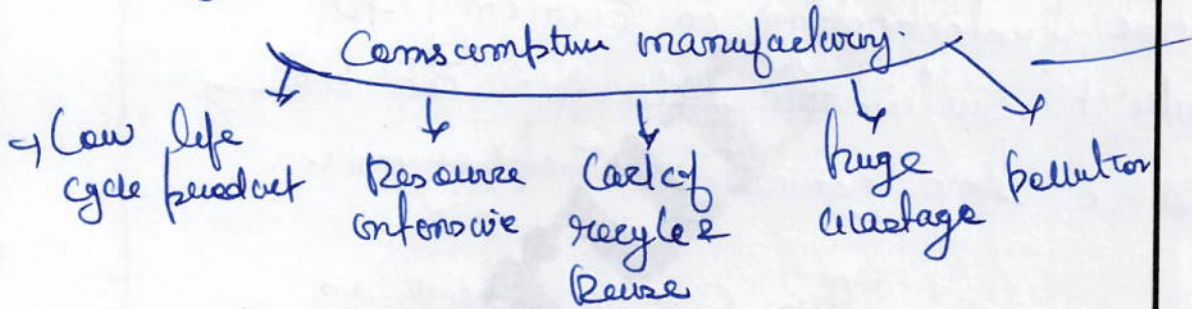 Comscomptive manufacturing.
→ Low life cycle product
Resource intensive
Lack of recycle & Reuse
huge wastage
pollution